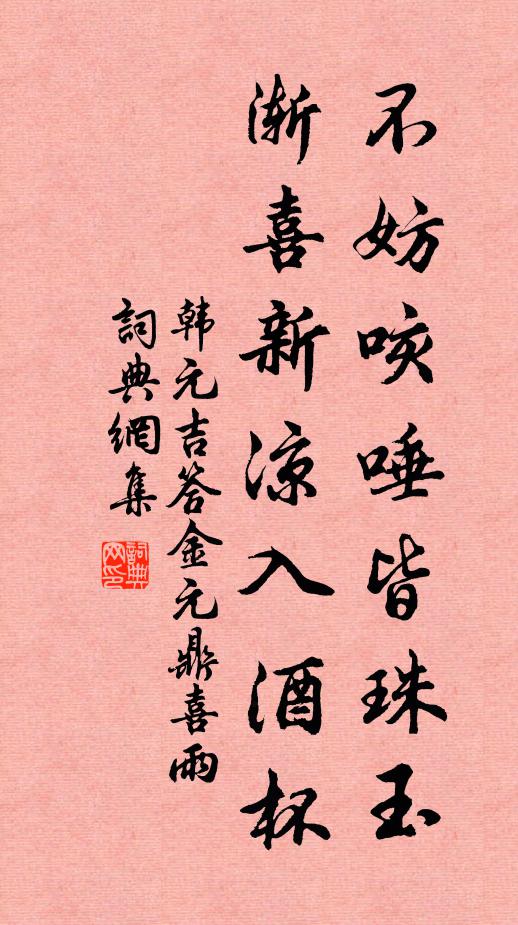 不妨咳唾皆珠玉
渐喜新凉入酒杯
韩元吉答金元鼎喜雨
詞典網集
詞典网印